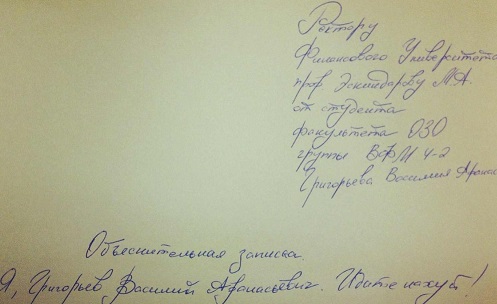 Ректору
Финансового Университета
проф Эскиндарову М.А.
от студента
факультета ОЗО
группы ВФМ 4-2
Григорьева Василия Афанас
Объяснительная записка.
Я, Григорьев Василий Афанасьевич. Идите нахуй!